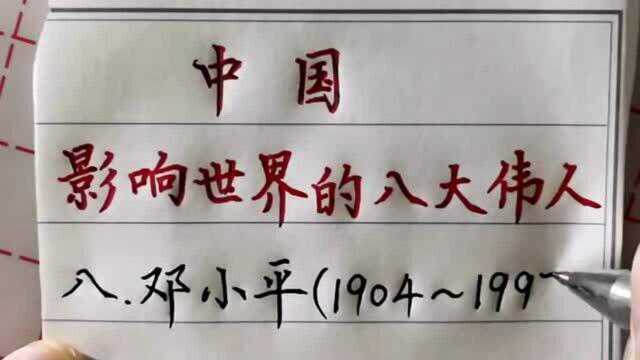 中国
影响世界的八大伟人
八.邓小平(1904～199